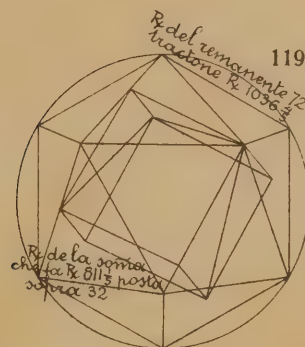 ℞ del remanente 72
tractone ℞ 1036 4/5
119
℞ de la soma
che fa ℞ 811 1/5 posta
sopra 32